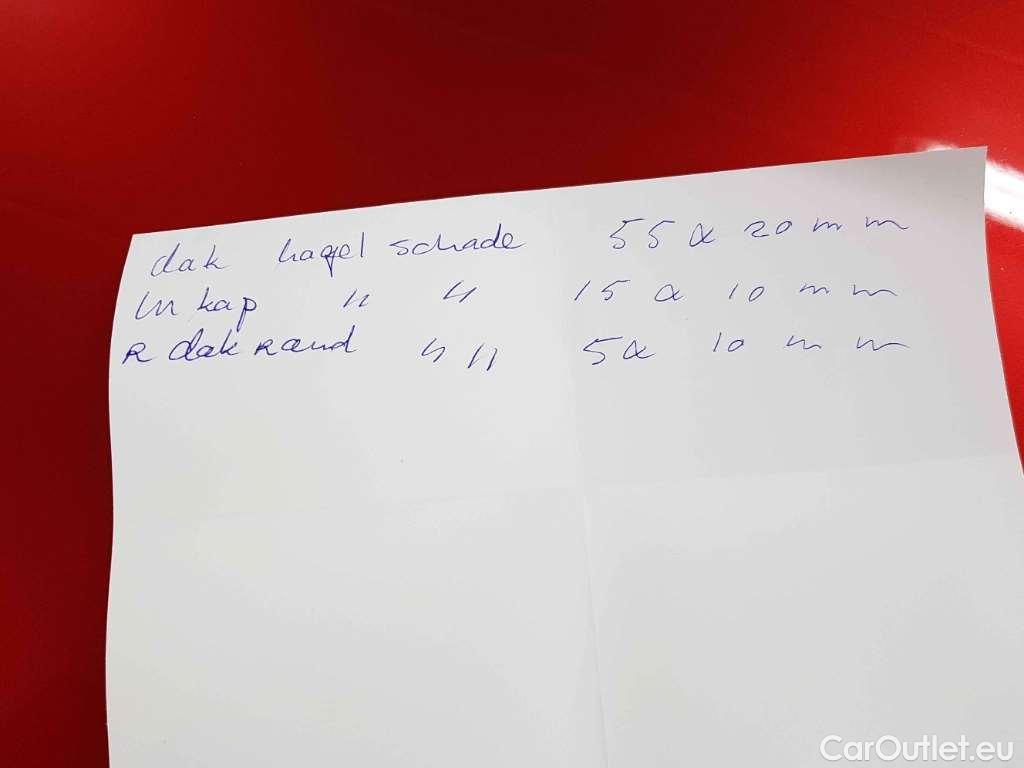 dak hagel schade 55 x 20 mm
m kap " " 15 x 10 mm
R dak rand " " 5x 10 mm
CarOutlet.eu